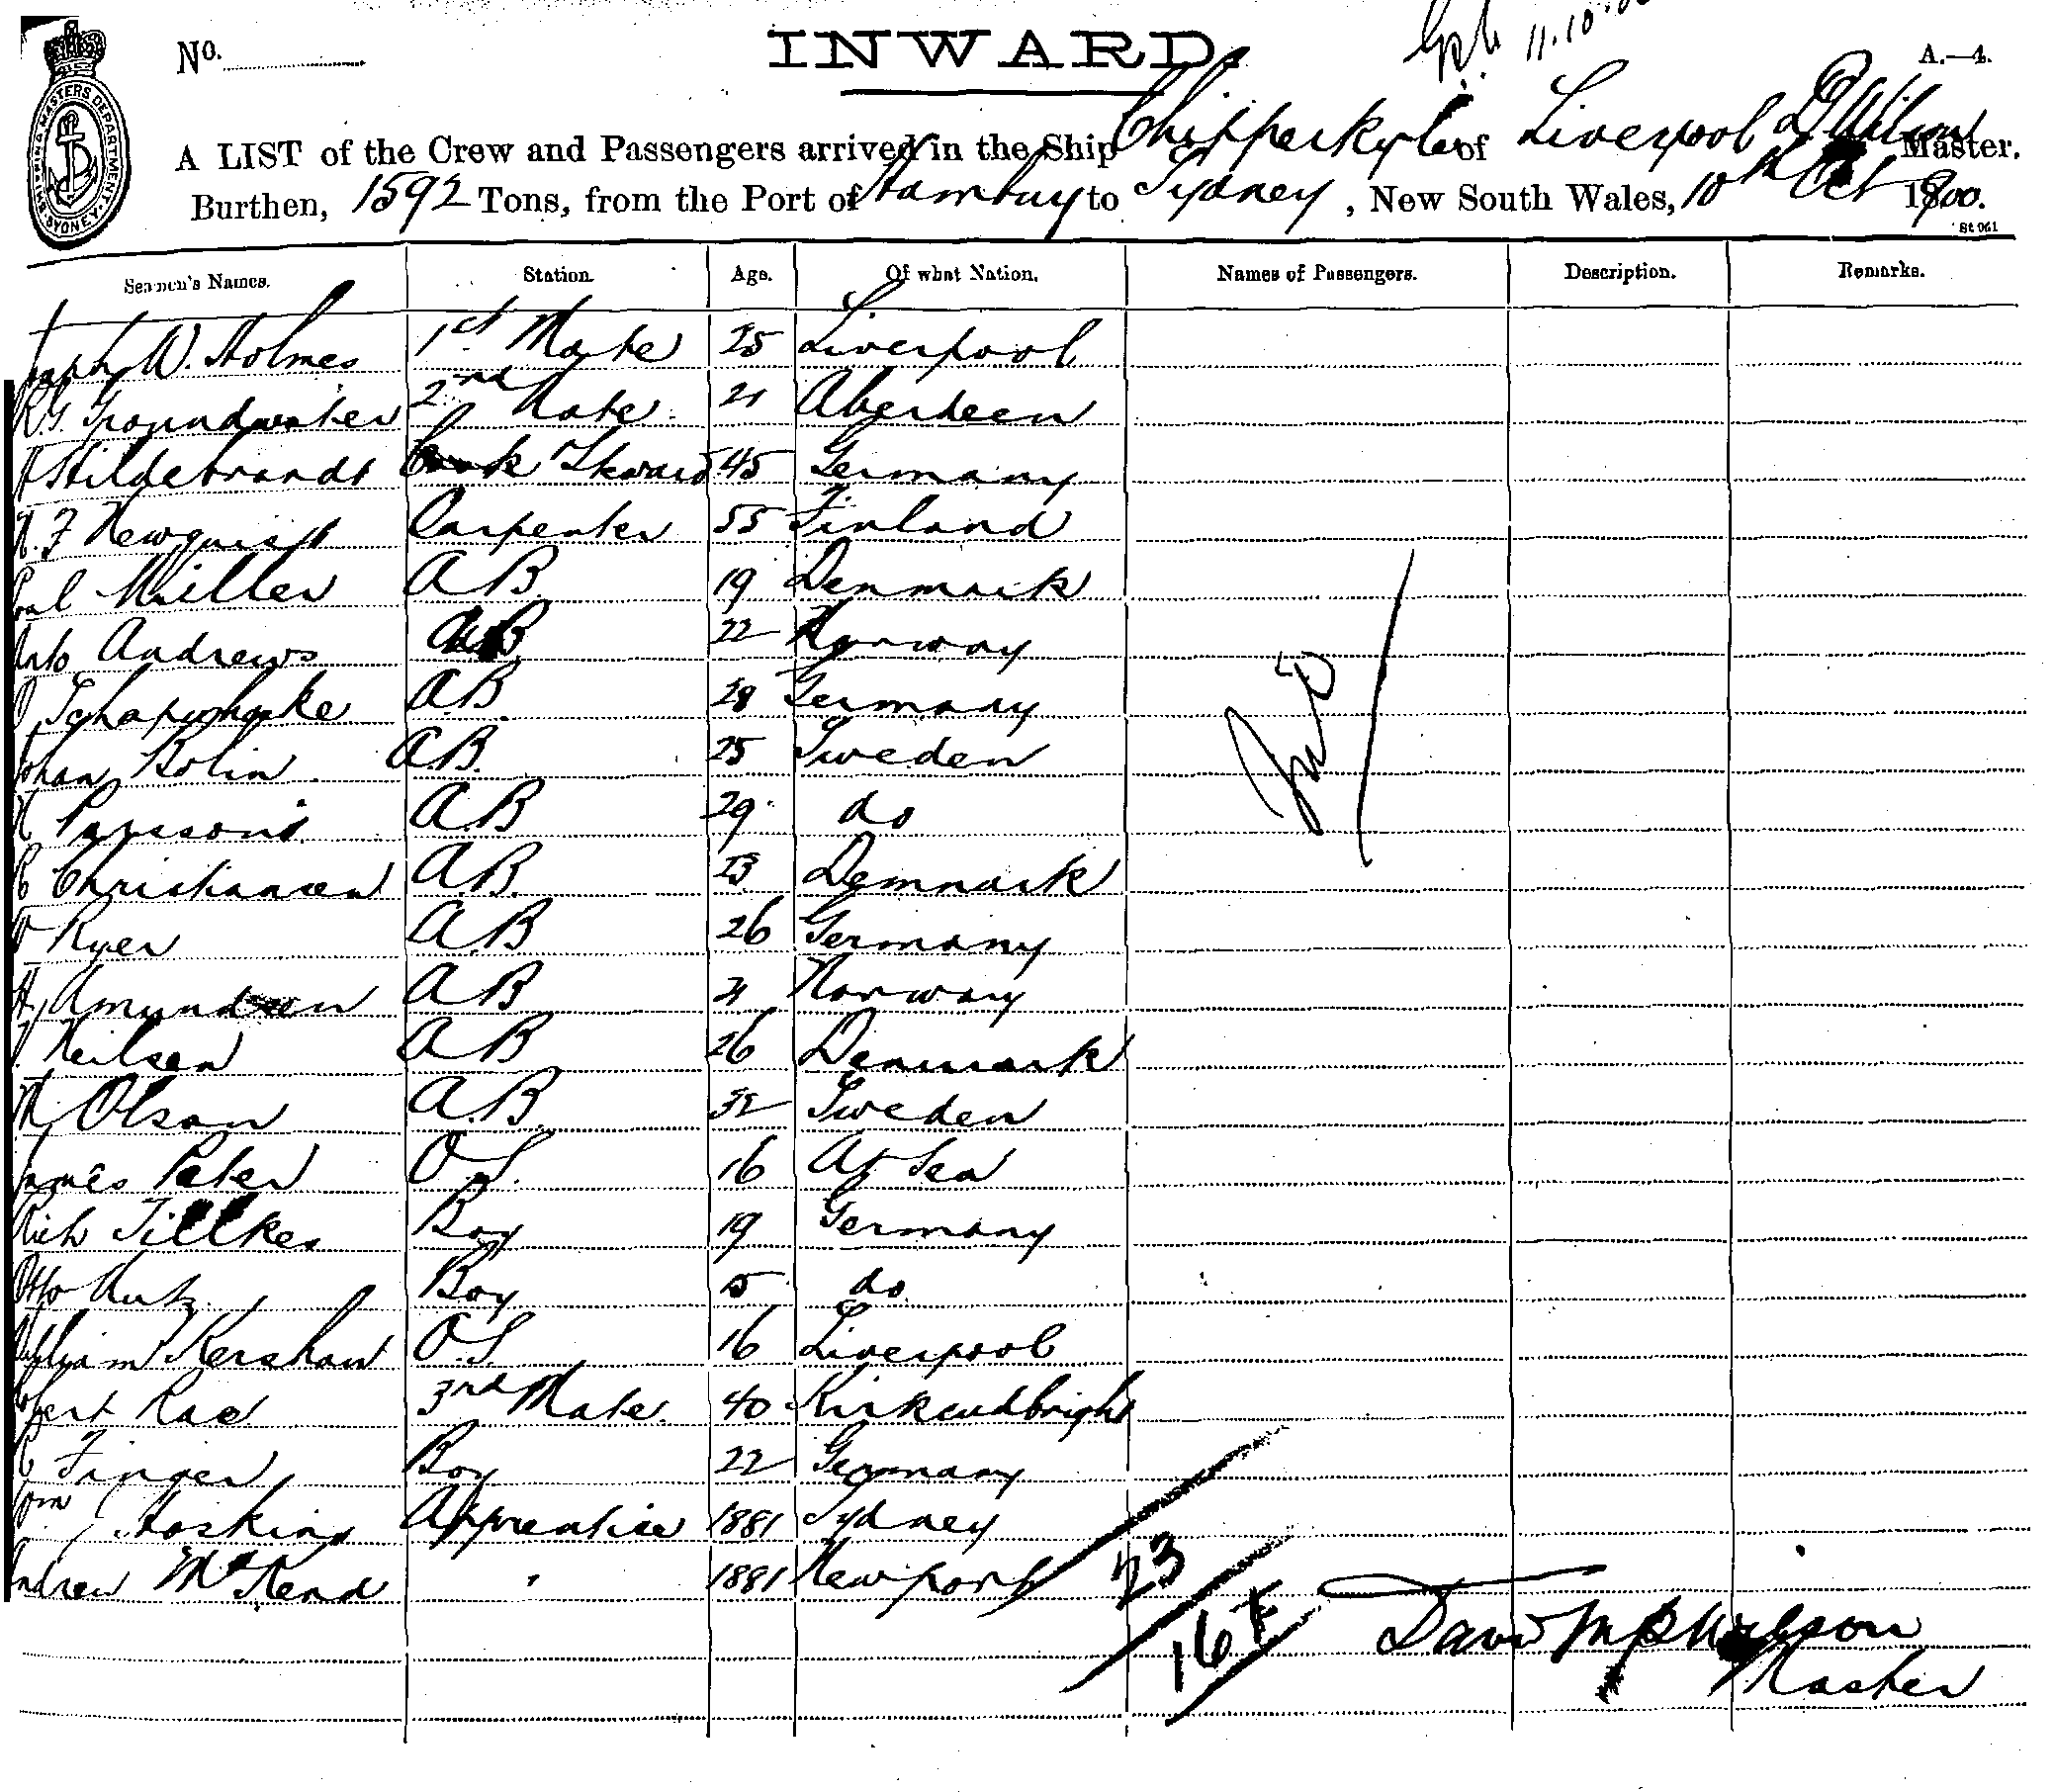 INWARD.
11.10.00
A.—4.
No.
SHIPPING MASTERS DEPARTMENT SYDNEY N.S.W.
A LIST of the Crew and Passengers arrived in the Ship Chipperkyle of Liverpool D Wilson Master.
Burthen, 1592 Tons, from the Port of Hamburg to Sydney, New South Wales, 10th Oct 1900.
St 961
Seamen's Names. Station. Age. Of what Nation. Names of Passengers. Description. Remarks.
W. Holmes 1st Mate 25 Liverpool
R.G. Groundwater 2nd Mate 21 Aberdeen
Hildebrandt Cook Steward 45 Germany
N. F Newquist Carpenter 55 Finland
Paul Miller A B 19 Denmark
Andrews A B 22 Norway
A.B. 28 Germany
Johan Bolin A.B. 25 Sweden
Parssons A.B 29 do
Christiansen A.B. 23 Denmark
Ryer A B 26 Germany
Amundsen A B 21 Norway
Neilsen A B 26 Denmark
Olson A.B. 32 Sweden
James Peter O S. 16 At Sea
Rich Tillkes Boy 19 Germany
Otto Kutz Boy 15 do
William Kershaw O.S. 16 Liverpool
Robert Rae 3rd Mate. 40 Kirkcudbright
Finger Boy 22 Germany
Hosking Apprentice 1881 Sydney
Andrew McKend " 1881 Newport
23
16
David Wilson
Master